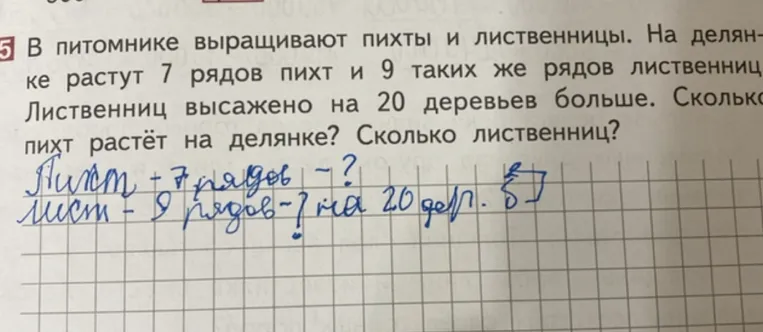 5 В питомнике выращивают пихты и лиственницы. На делян-
ке растут 7 рядов пихт и 9 таких же рядов лиственниц
Лиственниц высажено на 20 деревьев больше. Сколько
пихт растёт на делянке? Сколько лиственниц?
Пихт - 7 рядов - ?
лист - 9 рядов - ? на 20 дер. б